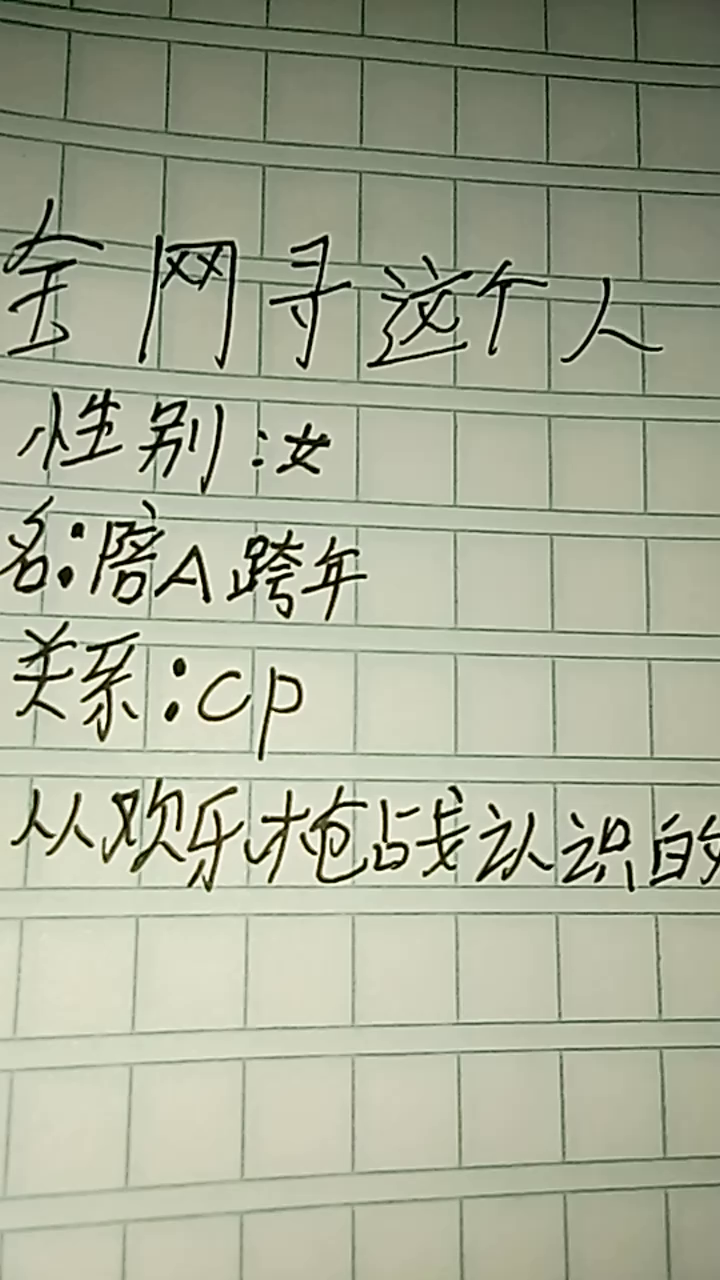 全网寻这个人
性别:女
名:陪A跨年
关系:cp
从欢乐枪战认识的